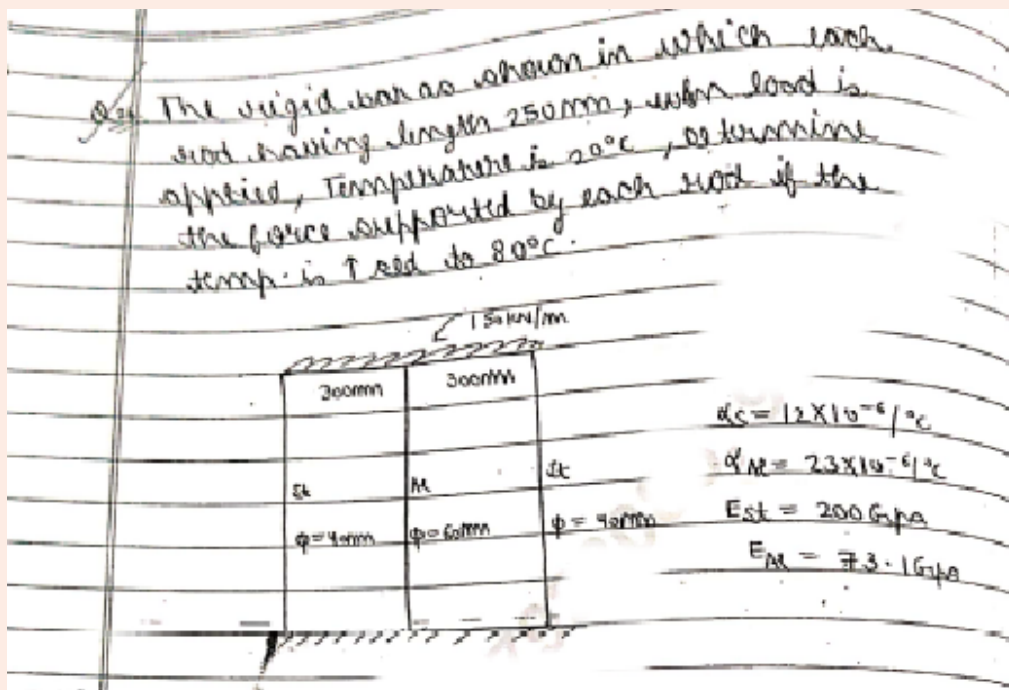 The rigid bar as shown in which each
rod having length 250mm, when load is
applied, Temperature is 20°C, determine
the force supported by each rod if the
temp. is ↑sed to 80°C.
150 kN/m
300mm 300mm
αs = 12×10⁻⁶/°C
αAl = 23×10⁻⁶/°C
St Al St
Est = 200 Gpa
φ=40mm φ=60mm φ=40mm
EAl = 73.1Gpa